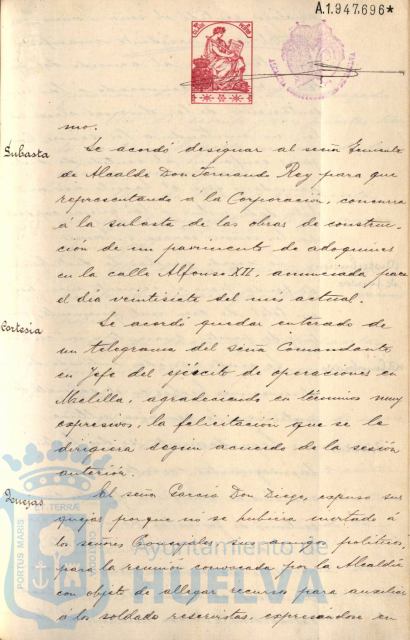 A.1.947.696*
mo.
Subasta
Se acordó designar al señor Teniente
de Alcalde Don Fernando Rey para que
representando á la Corporación, concurra
á la subasta de las obras de construc-
ción de un pavimento de adoquines
en la calle Alfonso XII, anunciada para
el dia veintisiete del mes actual.
Cortesía
Se acordó quedar enterado de
un telegrama del señor Comandante
en Jefe del ejército de operaciones en
Melilla, agradeciendo en términos muy
expresivos, la felicitación que se le
dirigiera según acuerdo de la sesión
anterior.
Quejas
El señor García Don Diego, expuso sus
quejas porque no se hubiera invitado á
los señores Concejales, sus amigos políticos,
para la reunión convocada por la Alcaldía
con objeto de allegar recursos para auxiliar
á los soldados reservistas, expresándose en
PORTUS MARIS
ET TERRAE
CUSTODIA
Ayuntamiento de
HUELVA